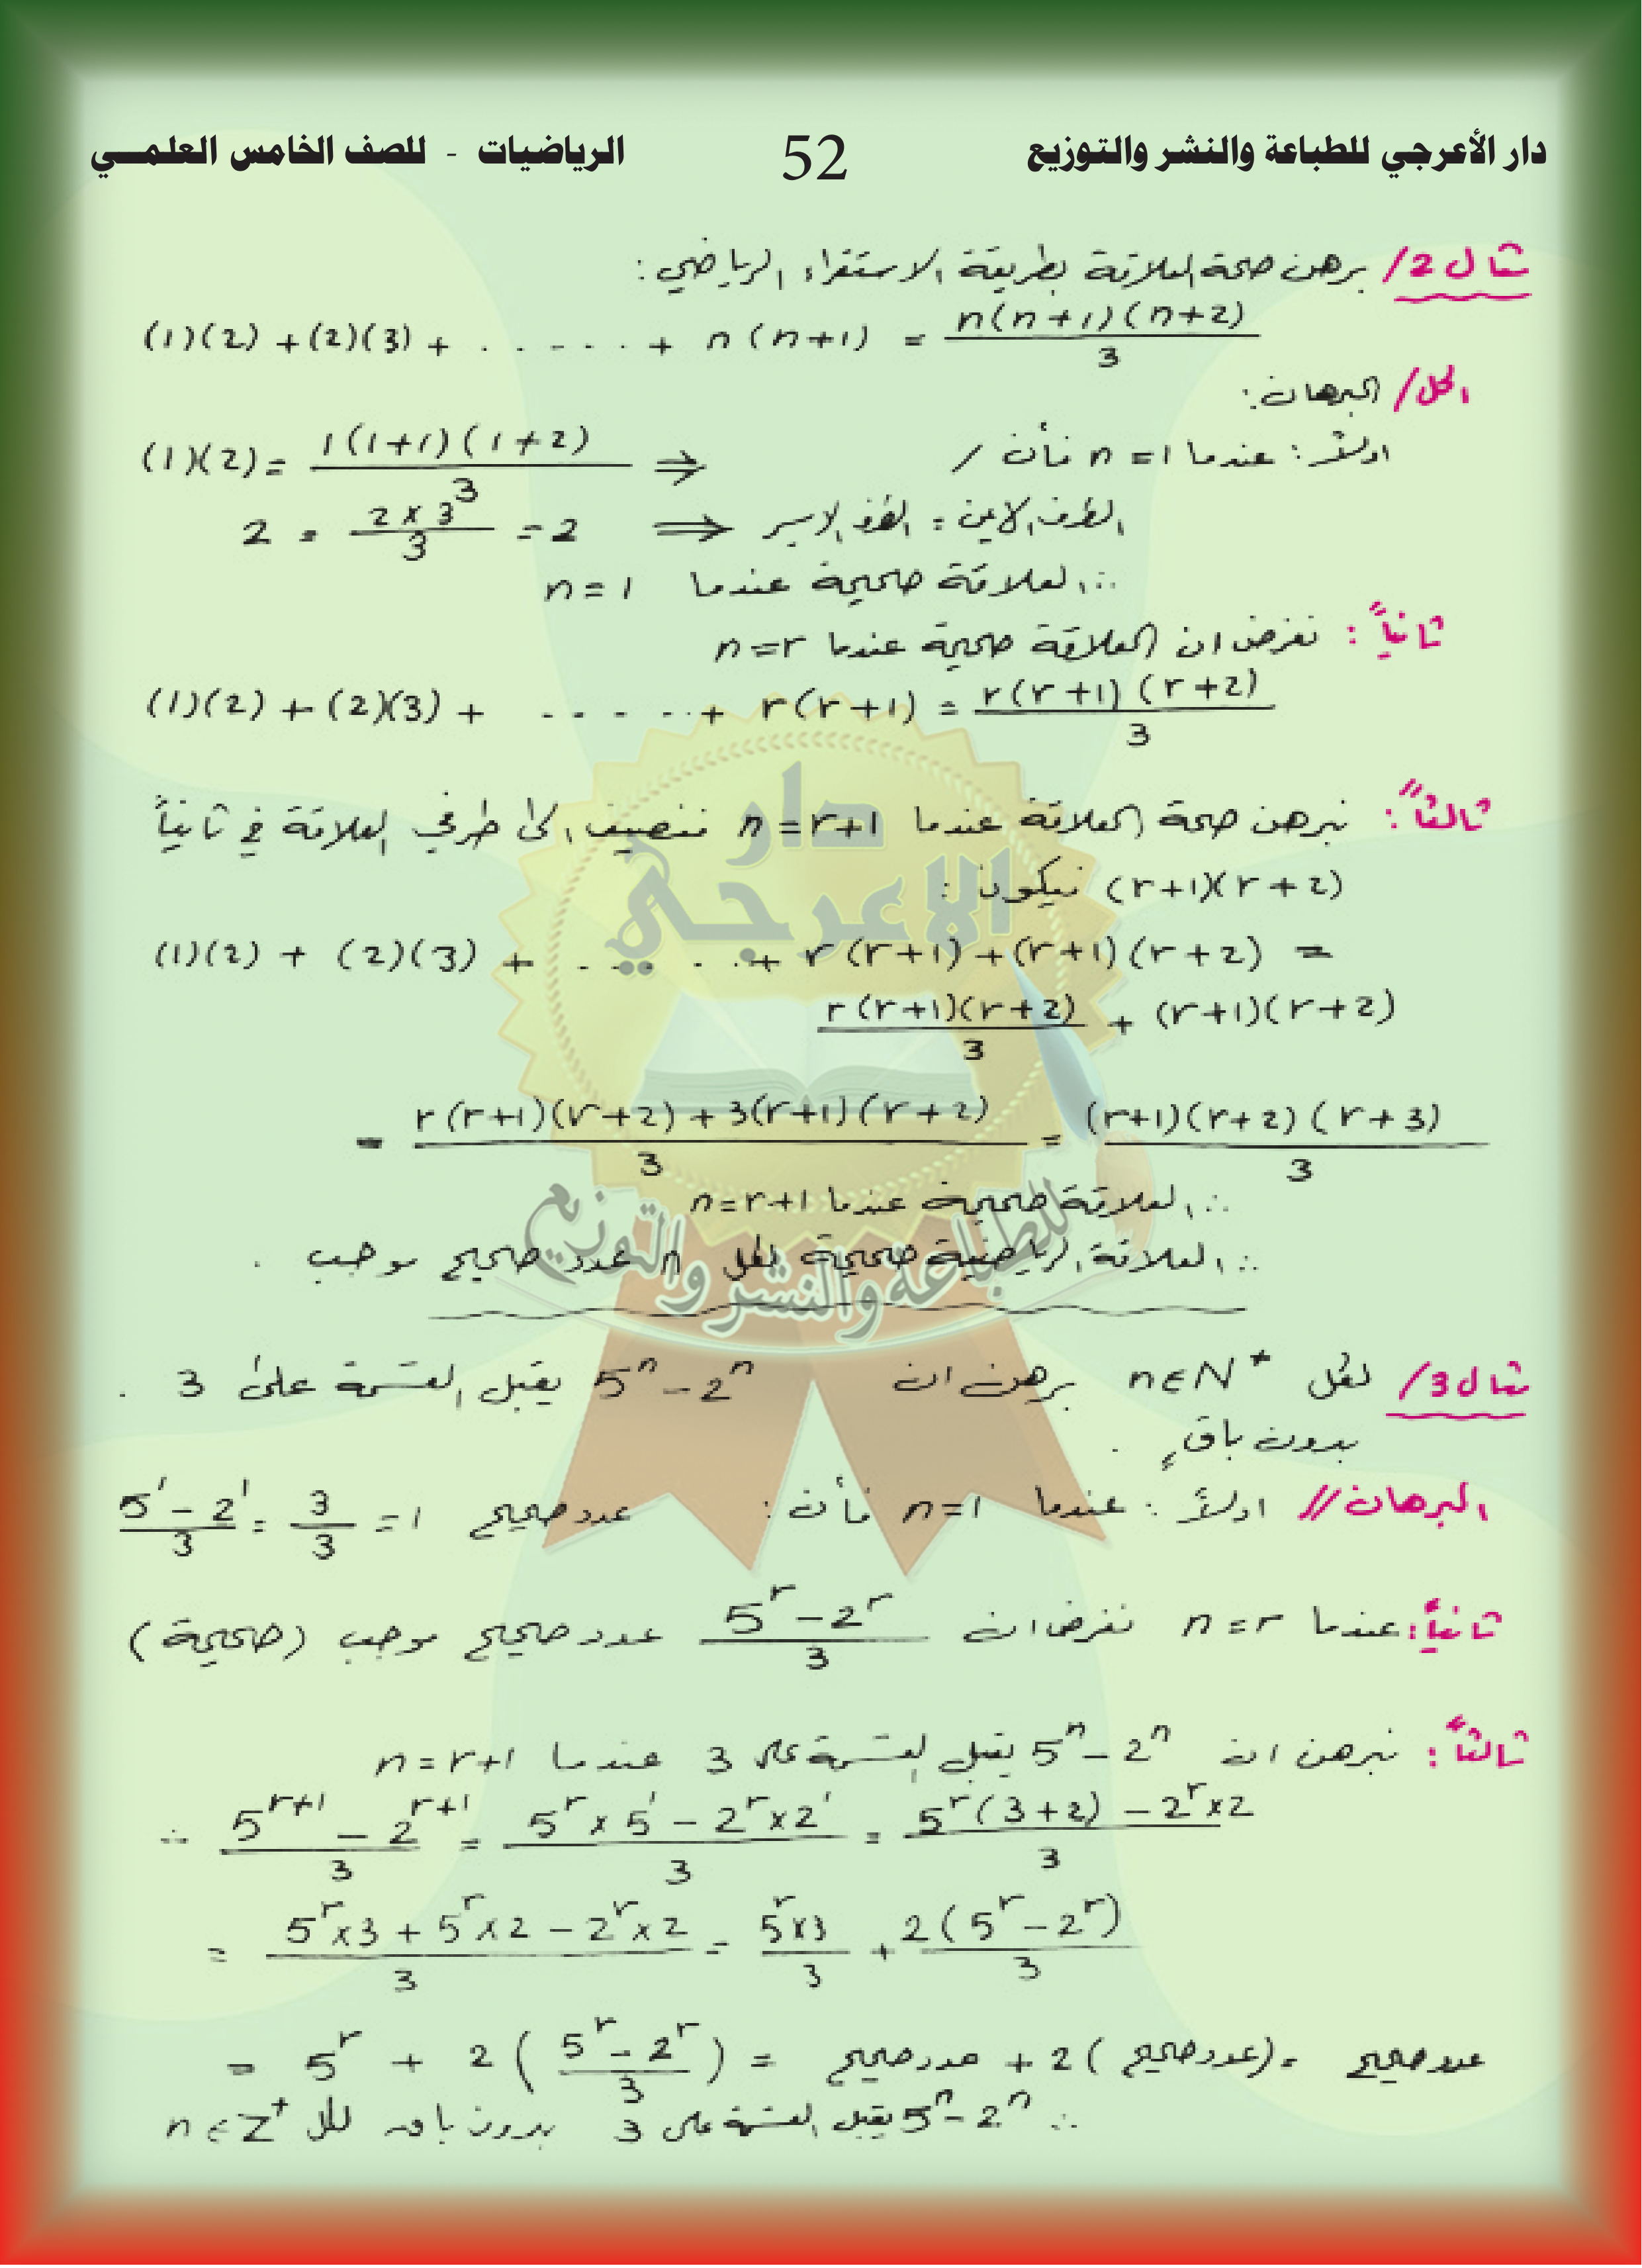 دار الأعرجي للطباعة والنشر والتوزيع 52 الرياضيات - للصف الخامس العلمـــي
مثال 2/ برهن صحة العلاقة بطريقة الاستقراء الرياضي:
(1)(2) + (2)(3) + ....... + n(n+1) = n(n+1)(n+2)/3
الحل/ البرهان:
اولاً: عندما n=1 فأن / (1)(2) = 1(1+1)(1+2)/3 ⇒
الطرف الايمن = الطرف الايسر ⇒ 2 = 2×3/3 = 2
∴ العلاقة صحيحة عندما n=1
ثانياً: نفرض ان العلاقة صحيحة عندما n=r
(1)(2) + (2)(3) + ..... + r(r+1) = r(r+1)(r+2)/3
ثالثاً: نبرهن صحة العلاقة عندما n=r+1 فنضيف الى طرفي العلاقة في ثانياً
(r+1)(r+2) فيكون:
(1)(2) + (2)(3) + ...... + r(r+1) + (r+1)(r+2) =
r(r+1)(r+2)/3 + (r+1)(r+2)
= r(r+1)(r+2) + 3(r+1)(r+2)/3 = (r+1)(r+2)(r+3)/3
∴ العلاقة صحيحة عندما n=r+1
∴ العلاقة الرياضية صحيحة لكل n عدد صحيح موجب .
مثال 3/ لكل n∈N* برهن ان 5ⁿ-2ⁿ يقبل القسمة على 3 .
بدون باقٍ .
البرهان// اولاً: عندما n=1 فأن: 5¹-2¹/3 = 3/3 = 1 عدد صحيح
ثانياً: عندما n=r نفرض ان 5ʳ-2ʳ/3 عدد صحيح موجب (صحيحة)
ثالثاً: نبرهن ان 5ⁿ-2ⁿ يقبل القسمة على 3 عندما n=r+1
∴ 5ʳ⁺¹-2ʳ⁺¹/3 = 5ʳ×5¹-2ʳ×2¹/3 = 5ʳ(3+2)-2ʳ×2/3
= 5ʳ×3+5ʳ×2-2ʳ×2/3 = 5ʳ×3/3 + 2(5ʳ-2ʳ)/3
= 5ʳ + 2(5ʳ-2ʳ/3) = عدد صحيح + 2(عدد صحيح) = عدد صحيح
∴ 5ⁿ-2ⁿ يقبل القسمة على 3 بدون باقٍ لكل n∈Z⁺
دار
الاعرجي
للطباعة والنشر والتوزيع